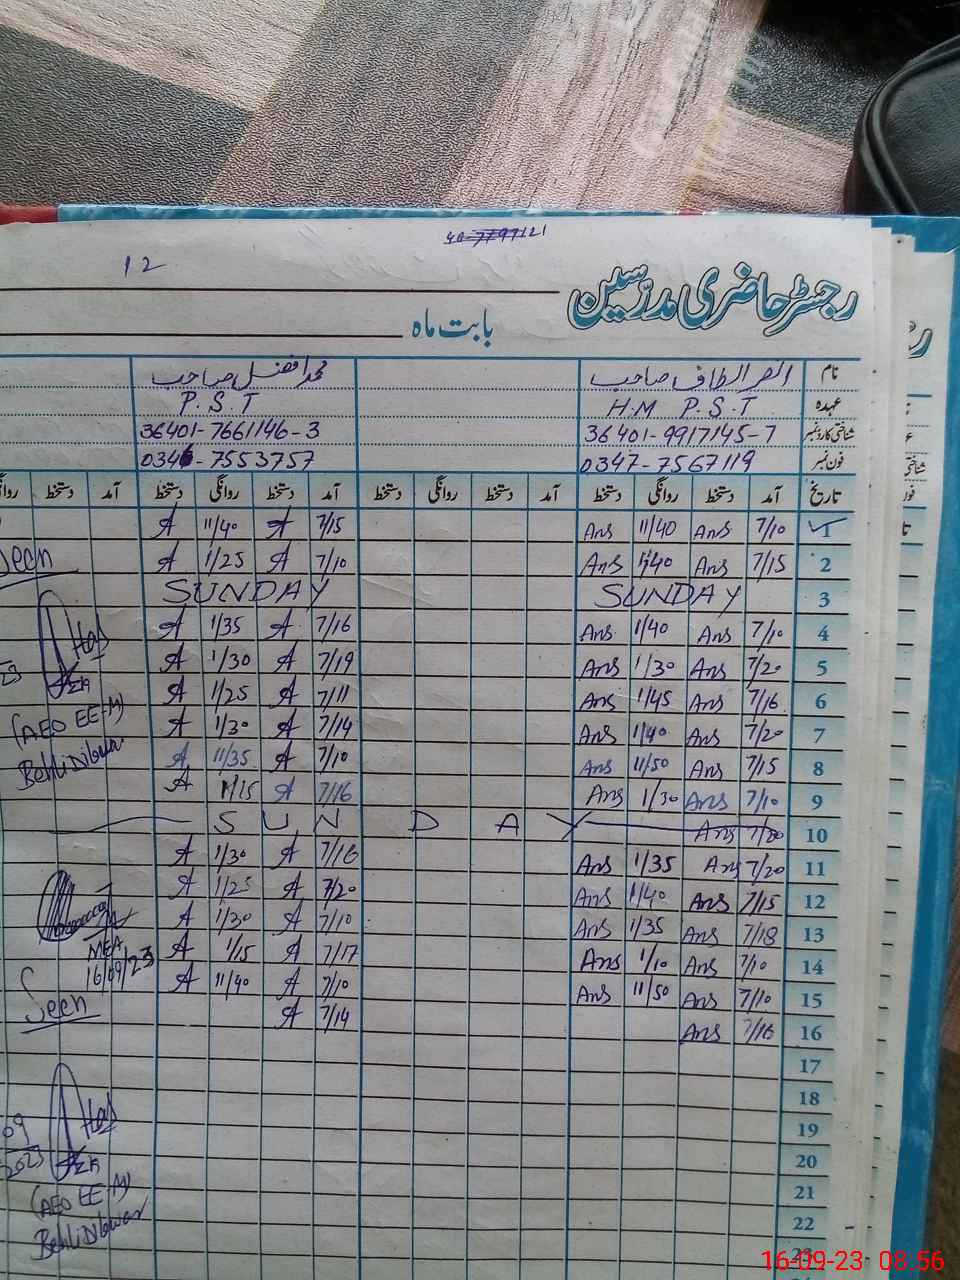 40-7797121
12
رجسٹر حاضری مدرّسین
بابت ماہ
نام الطاف صاحب محمد افضل صاحب
عہدہ H.M P.S.T P.S.T
شناختی کارڈ نمبر 36401-9917145-7 36401-7661146-3
فون نمبر 0347-7567119 0346-7553757
تاریخ آمد دستخط روانگی دستخط آمد دستخط روانگی دستخط آمد دستخط روانگی دستخط آمد دستخط
1 7/10 Ans 11/40 Ans 7/15 A 11/40 A
2 7/15 Ans 1/40 Ans 7/10 A 1/25 A Seen
3 SUNDAY SUNDAY
4 7/10 Ans 1/40 Ans 7/16 A 1/35 A
5 7/20 Ans 1/30 Ans 7/19 A 1/30 A
6 7/16 Ans 1/45 Ans 7/11 A 1/25 A
7 7/20 Ans 1/40 Ans 7/14 A 1/30 A (AEO EE-M)
8 7/15 Ans 11/50 Ans 7/10 A 11/35 A
9 7/10 Ans 1/30 Ans 7/16 A 1/15 A
10 Ans SUNDAY
11 7/20 Ans 1/35 Ans 7/16 A 1/30 A
12 7/15 Ans 1/40 Ans 7/20 A 1/25 A
13 7/18 Ans 1/35 Ans 7/10 A 1/30 A
14 7/10 Ans 1/10 Ans 7/17 A 1/15 A MEA
15 7/10 Ans 11/50 Ans 7/10 A 11/40 A 16/09/23
16 7/16 Ans 7/14 A Seen
17
18
19
20
21
22 (AEO EE-M)
23
16-09-23 08:56